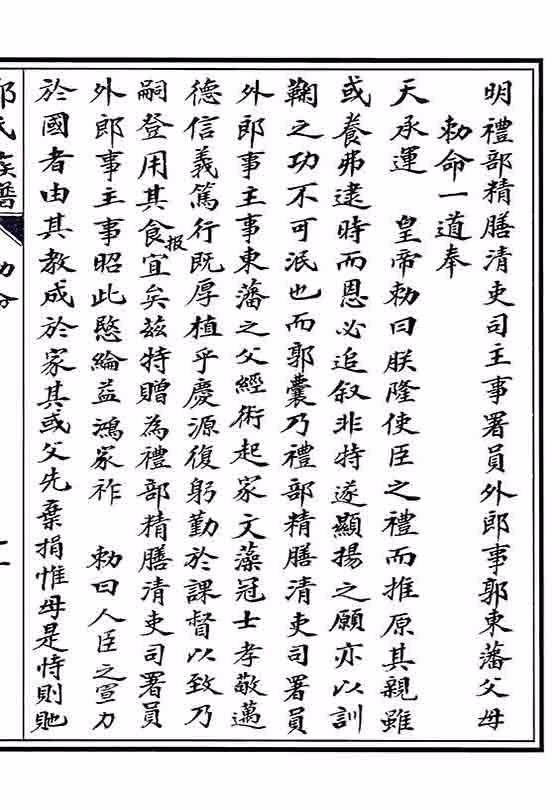 明禮部精膳清吏司主事署員外郎事郭東藩父母
勅命一道奉
天承運 皇帝勅曰朕隆使臣之禮而推原其親雖
或養弗逮時而恩必追叙非特遂顯揚之願亦以訓
鞠之功不可泯也而郭囊乃禮部精膳清吏司署員
外郎事主事東藩之父經術起家文藻冠士孝敬邁
德信義篤行既厚植乎慶源復躬勤於課督以致乃
嗣登用其食报宜矣兹特贈為禮部精膳清吏司署員
外郎事主事昭此愍綸益鴻家祚 勅曰人臣之宣力
於國者由其教成於家其或父先棄捐惟母是恃則貤
氏族譜